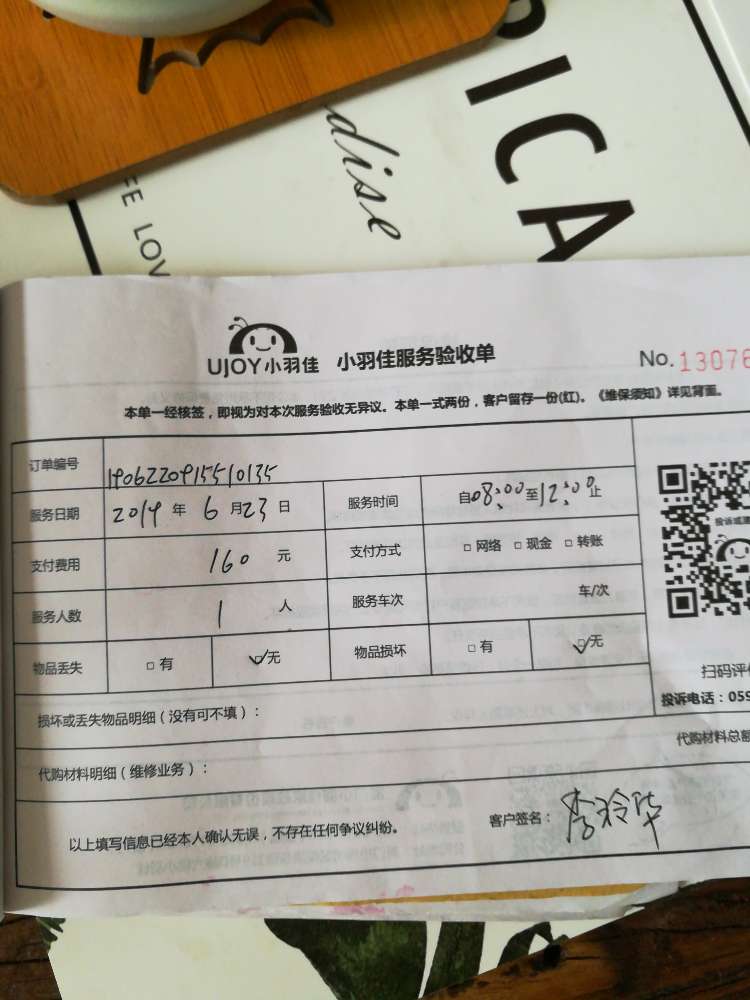 PICA
dise
FE LOV
UJOY小羽佳 小羽佳服务验收单
No.13076
本单一经核签，即视为对本次服务验收无异议。本单一式两份，客户留存一份(红)。《维保须知》详见背面。
订单编号 1906220915510135
服务日期 2019 年 6 月 23 日 服务时间 自08:00至12:00止
支付费用 160 元 支付方式 □ 网络 □ 现金 □ 转账
服务人数 1 人 服务车次 车/次
物品丢失 □ 有 ☑无 物品损坏 □ 有 ☑无
投诉或
扫码评价
投诉电话：059
损坏或丢失物品明细（没有可不填）：
代购材料明细（维修业务）： 代购材料总额
以上填写信息已经本人确认无误，不存在任何争议纠纷。 客户签名：李玲华